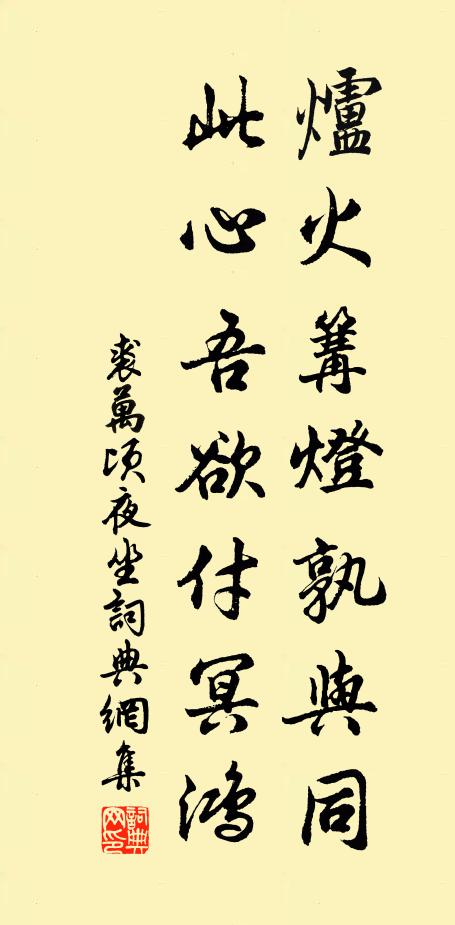 爐火篝燈孰與同
此心吾欲付冥鴻
裘萬頃夜坐詞典網集
詞典网印